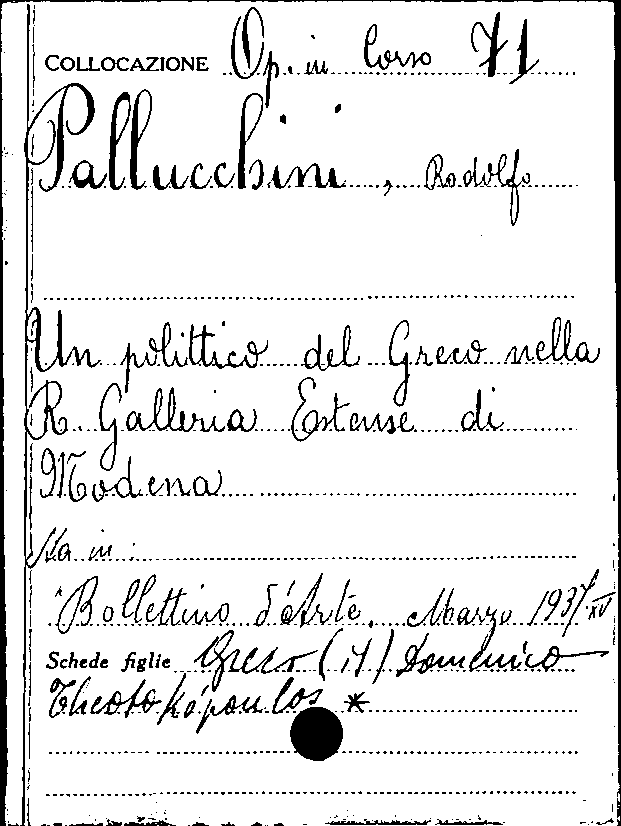 COLLOCAZIONE Op. in Corso 71
Pallucchini, Rodolfo
Un polittico del Greco nella
R. Galleria Estense di
Modena
Sta in:
"Bollettino d'Arte. Marzo 1937.XV
Schede figlie Greco (il) Domenico
Theotokópoulos *